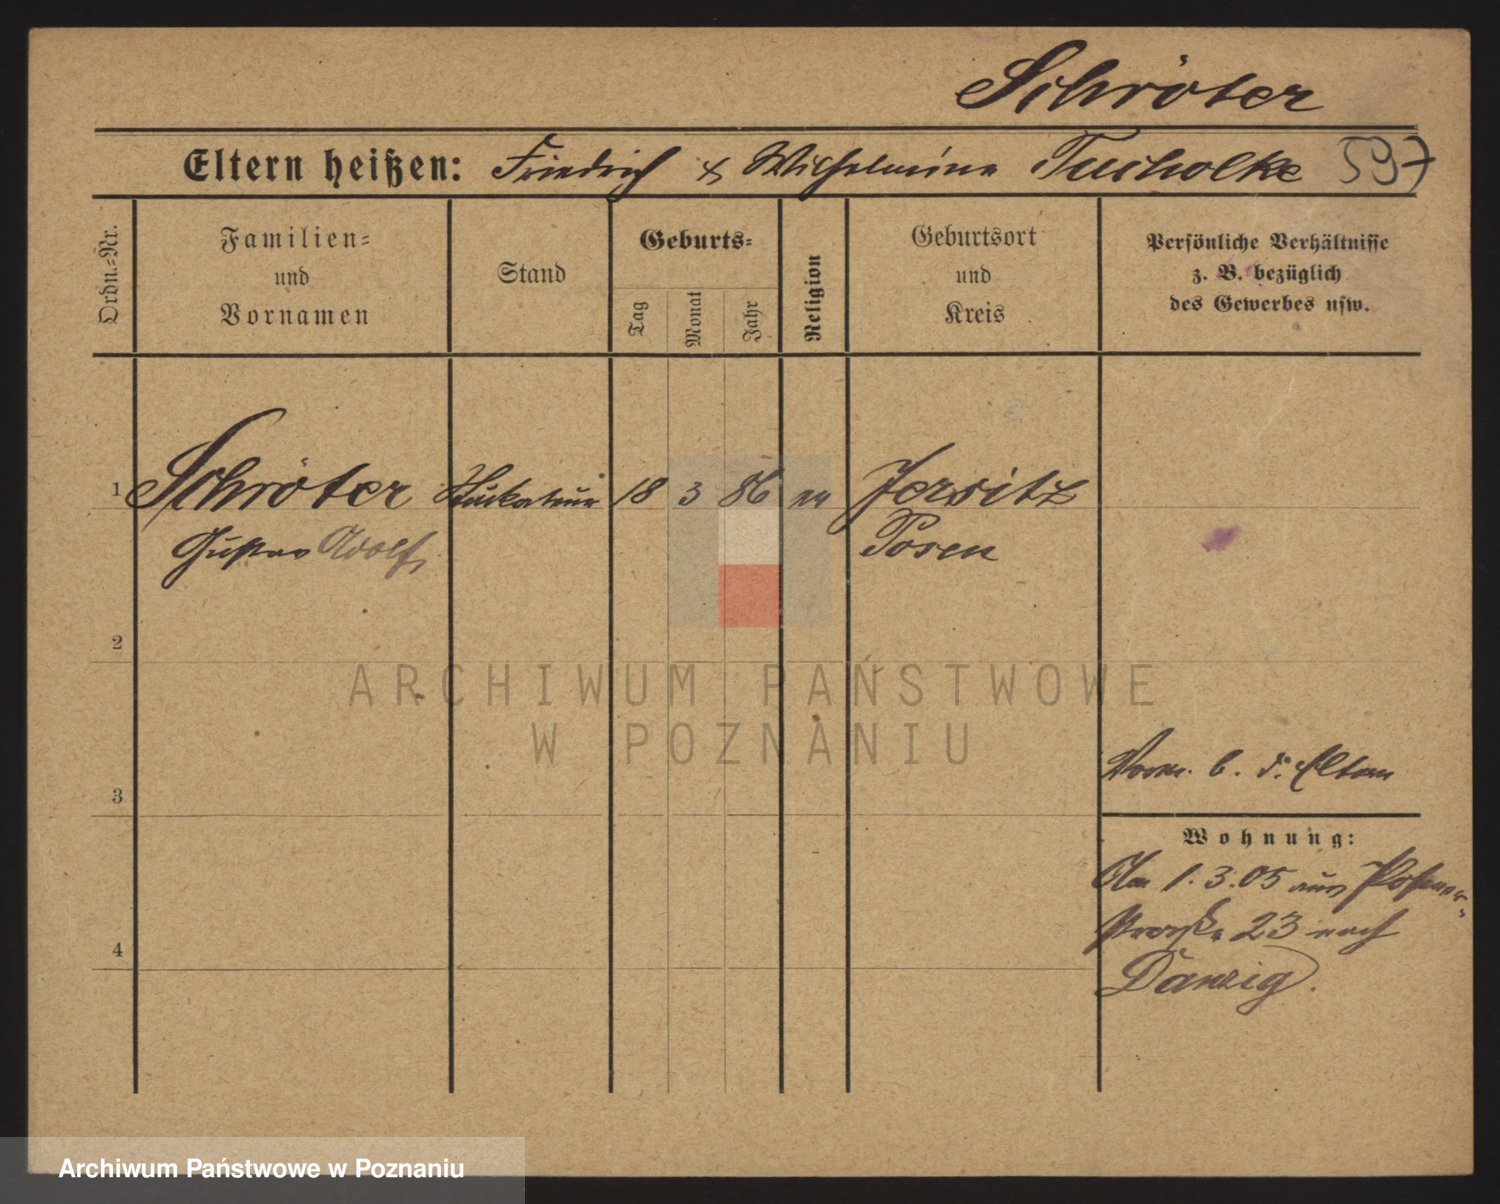 Schröter
Eltern heißen: Friedrich & Wilhelmine Tucholke 597
Ordn.-Nr.
Familien-
und
Vornamen
Stand
Geburts-
Tag
Monat
Jahr
Religion
Geburtsort
und
Kreis
Persönliche Verhältnisse
z. B. bezüglich
des Gewerbes usw.
1 Schröter Stukateur 18 3 86 ev Jersitz
Gustav Adolf Posen
2
ARCHIWUM PAŃSTWOWE
W POZNANIU
Vorm. b. d. Eltern
3
Wohnung:
Am 1.3.05 aus Posener-
straße 23 nach
4
Danzig.
Archiwum Państwowe w Poznaniu